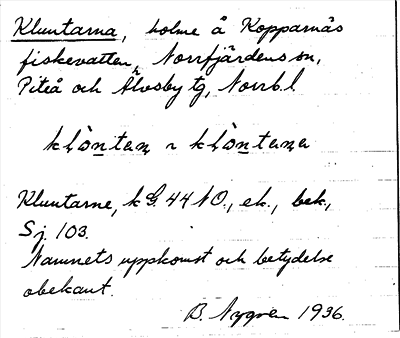 Kluntarna, holme å Kopparnäs
fiskevatten, Norrfjärdens sn,
Piteå och Älvsby tg, Norrb. l
klòntan ~ klòntana
Kluntarne, k G. 44 NO., ek., bek.,
Sj. 103.
Namnets uppkomst och betydelse
obekant.
B. Nygren 1936.